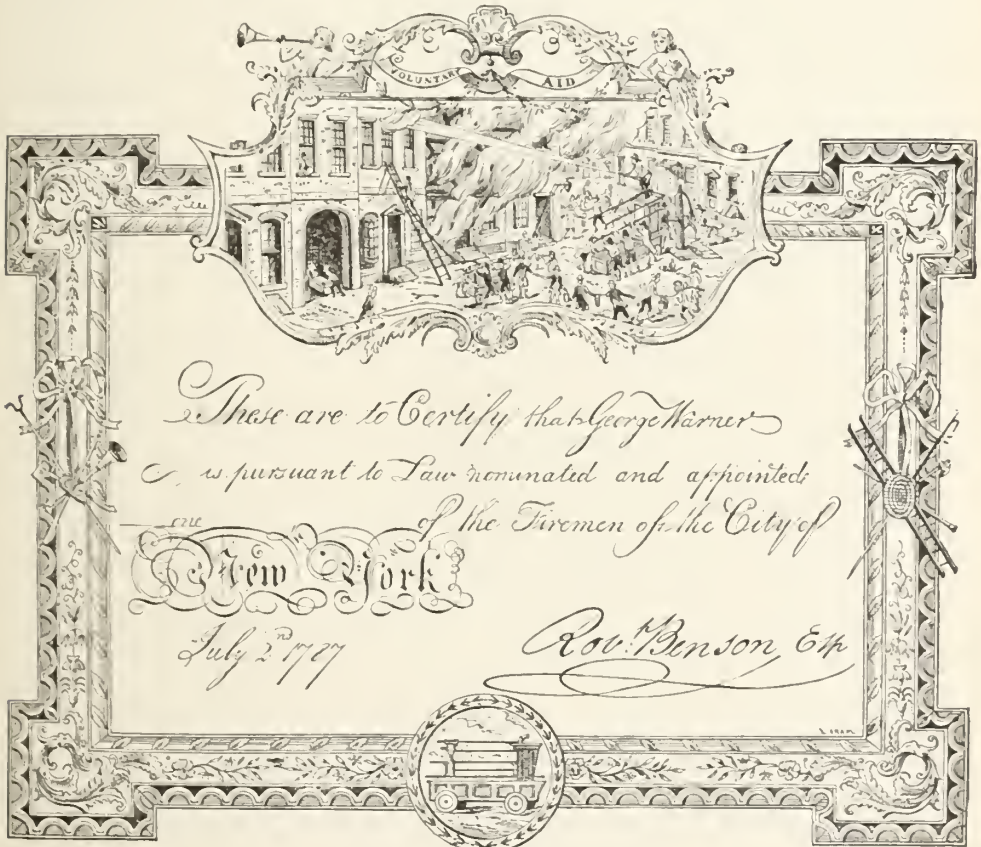 VOLUNTARY AID
These are to Certify that George Warner
is pursuant to Law nominated and appointed
one of the Firemen of the City of
New York
July 2nd 1787
Robt. Benson, Esq